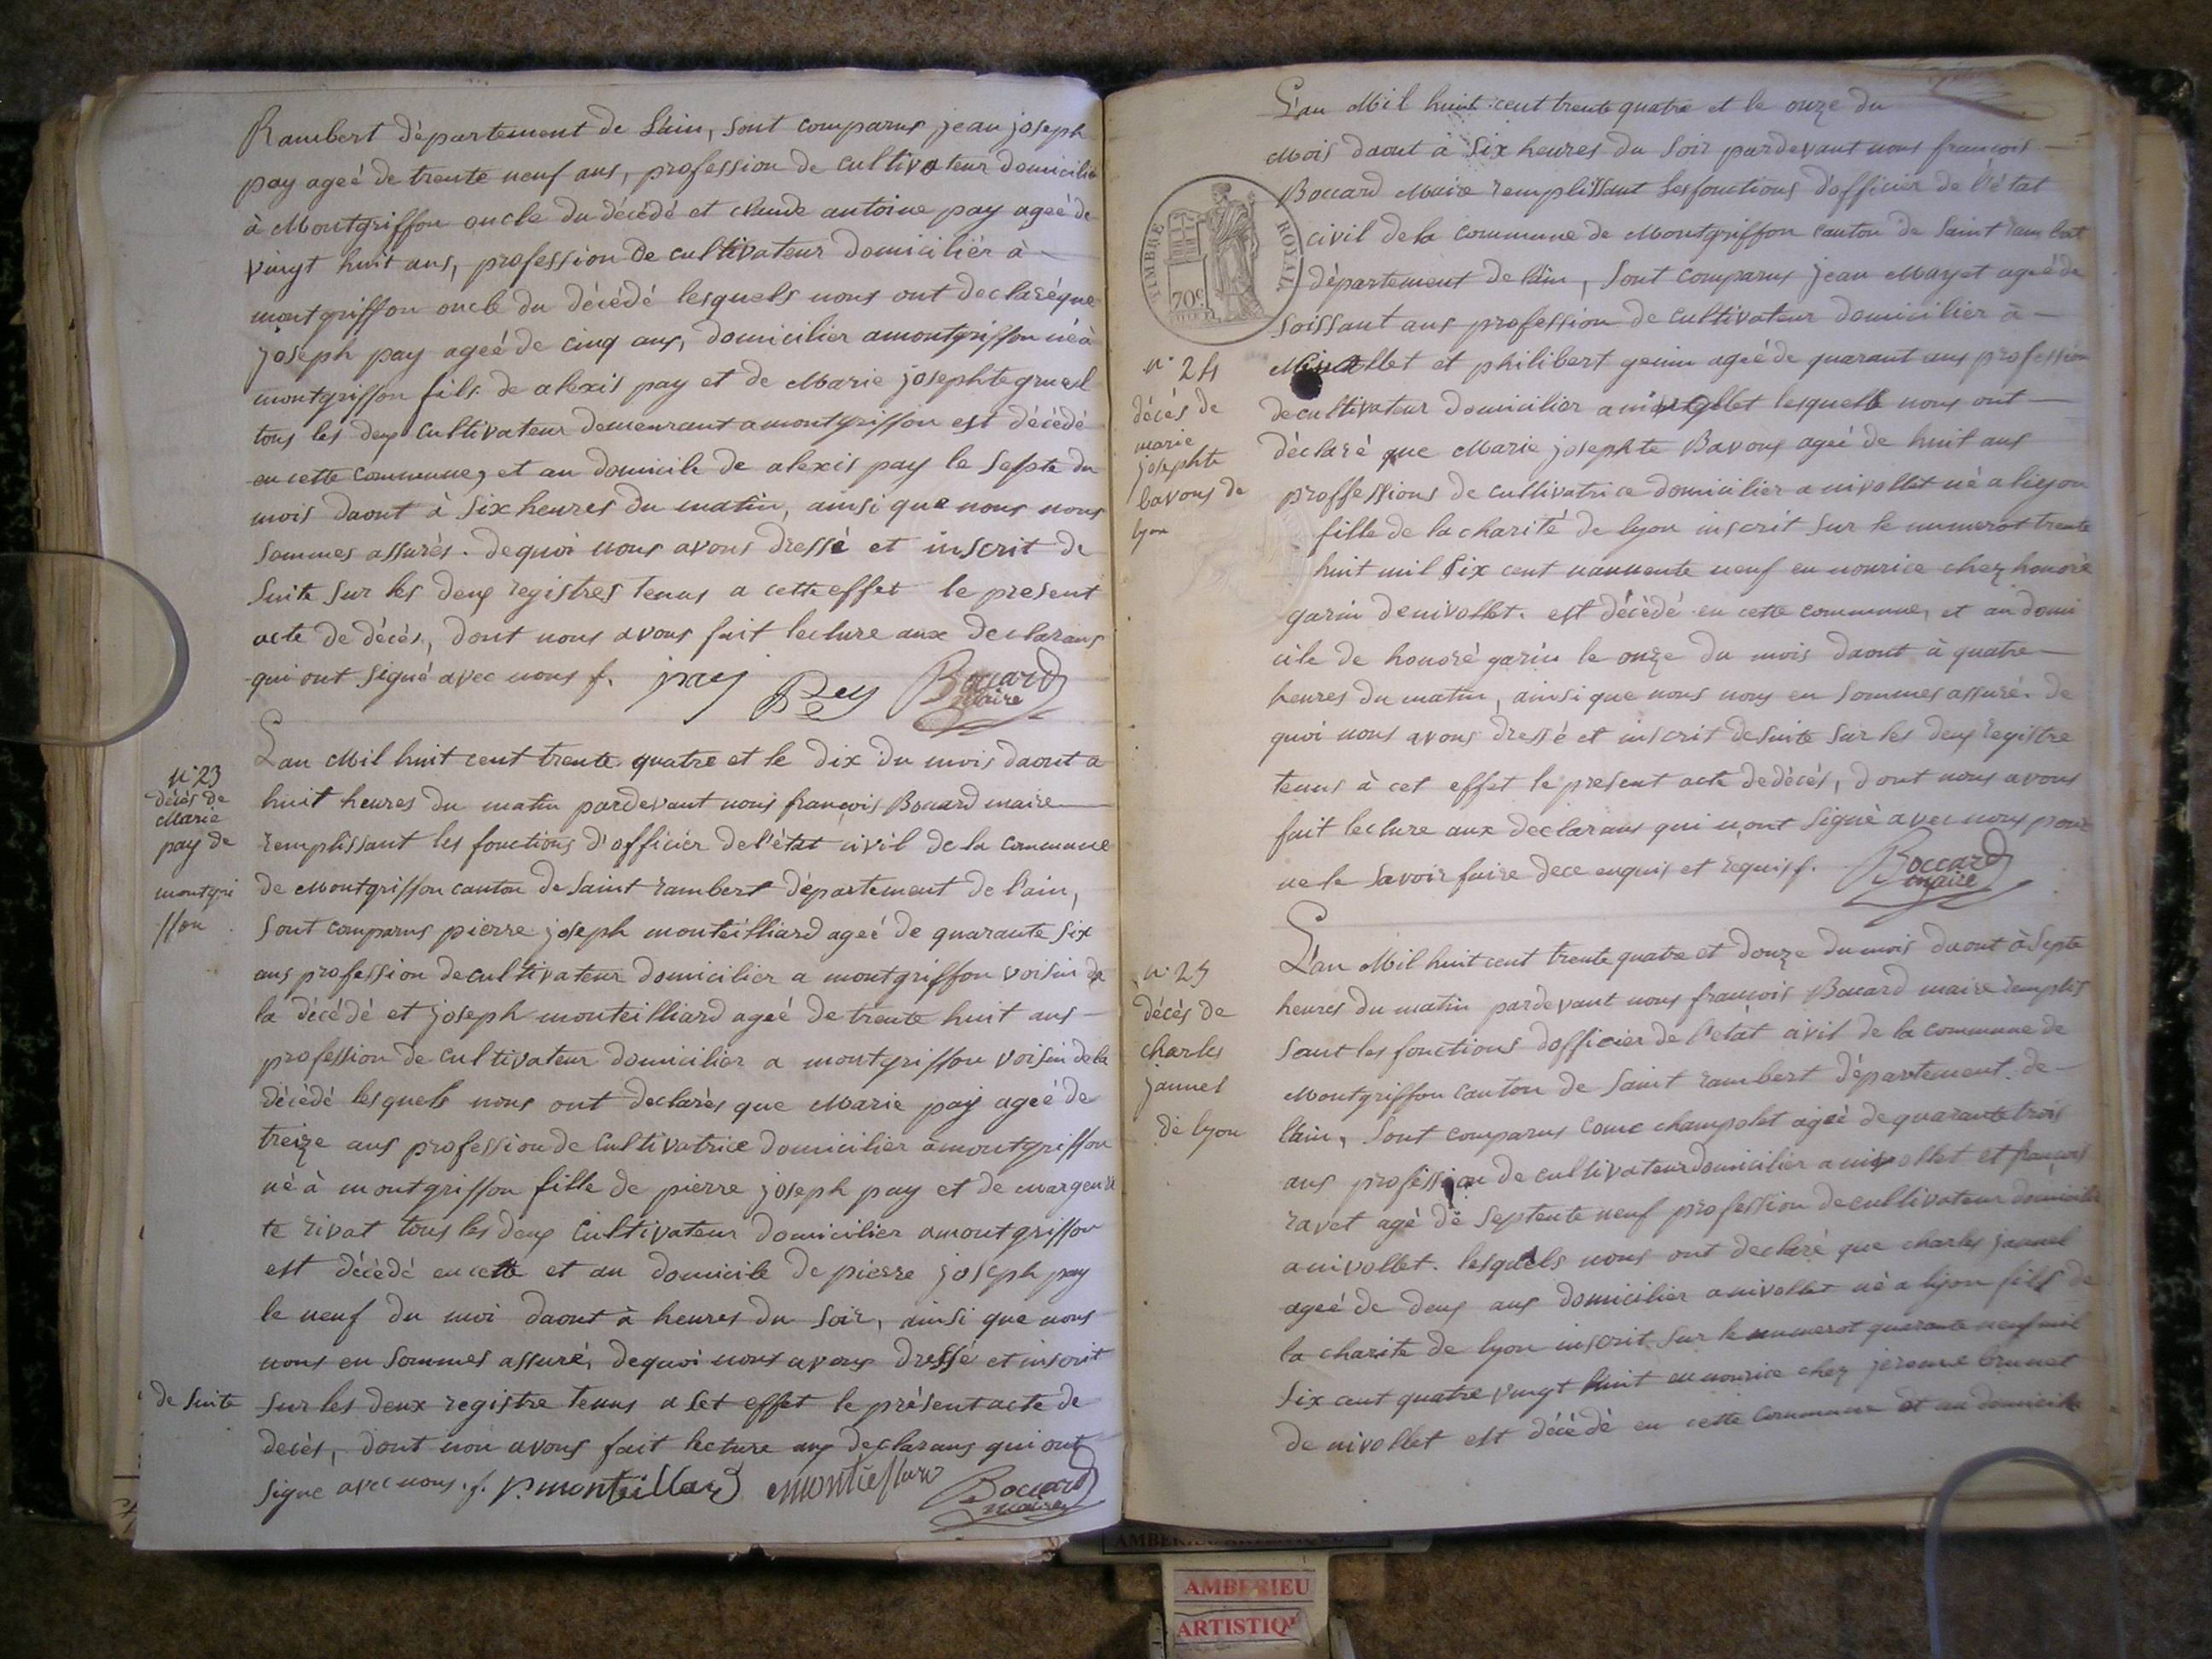 Rambert département de L'ain, sont comparus jean joseph
pay ageé de trente neuf ans, profession de cultivateur domicilié
à Montgriffon oncle du décédé et claude antoine pay ageé de
vingt huit ans, profession de cultivateur domiciliér à
montgriffon oncle du décédé lesquels nous ont declaréque
joseph pay ageé de cinq ans, domicilier amontgriffon né à
montgriffon fils de alexis pay et de Marie josephte gruel
tous les deux cultivateur demeurant amontgriffon est décédé
en cette commune, et au domicile de alexis pay le septe du
mois daout à six heures du matin, ainsi que nous nous
sommes assurés. dequoi nous avons dressé et inscrit de
suite sur les deux registres tenus a cette effet le present
acte de décès, dont nous avons fait lecture aux declarans
qui ont signé avec nous f. jpay Pey Boccard
maire
n° 23
décès de
Marie
pay de
montgri
ffon
L'an Mil huit cent trente quatre et le dix du mois daout a
huit heures du matin pardevant nous françois Boccard maire
remplissant les fonctions d'officier de l'état civil de la commune
de Montgriffon canton de saint rambert département de l'ain,
sont comparus pierre joseph monteilliard ageé de quarante six
ans profession decultivateur domicilier a montgriffon voisin de
la décédé et joseph monteilliard ageé de trente huit ans
profession de cultivateur domicilier a montgriffon voisin dela
décédé lesquels nous ont declarés que Marie pay ageé de
treize ans profession de cultivatrice domicilier àmontgriffon
né à montgriffon fille de pierre joseph pay et de margeuri
te rivat tous les deux cultivateur domicilier amontgriffon
est décédé en cette et au domicile de pierre joseph pay
le neuf du moi daout à heures du soir, ainsi que nous
nous en sommes assuré, dequoi nous avons dressé et inscrit
de suite sur les deux registre tenus a set effet le présent acte de
decès, dont nou avons fait lecture aux declarans qui ont
signé avec nous. f. p. monteillard Boccard
maire
L'an Mil huit cent trente quatre et le onze du
Mois daout à six heures du soir pardevant nous françois
Boccard Maire remplissant les fonctions d'officier de l'état
civil dela commune de Montgriffon canton de saint rambert
département de lain, sont comparus jean Mayet ageé de
soissant ans profession de cultivateur domicilier à
TIMBRE ROYAL
70c
n° 24
décés de
marie
josephte
bavous de
lyon
Nivollet et philibert genin ageé de quarant ans profession
decultivateur domicilier a nivollet lesquells nous ont
déclaré que Marie josephte Bavoux ageé de huit ans
proffessions de cultivatrice domicilier a nivollet né a liyon
fille de la charité de lyon inscrit sur le numerot trente
huit mil six cent nannente neuf en nourice chez honoré
garin denivollet. est décédé en cette commune, et au domi
cile de honoré garin le onze du mois daout à quatre
heures du matin, ainsi que nous nous en sommes assuré. de
quoi nous avons dressé et inscrit desuite sur les deux registre
tenus à cet effet le present acte dedécés, dont nous avons
fait lecture aux declarans qui nont signé avec nous pour
ne le savoir faire dece enquis et requis f. Boccard
maire
n° 25
décés de
charles
jannel
de lyon
L'an Mil huit cent trente quatre et douze du mois daout à septe
heures du matin pardevant nous françois Boccard maire remplis
sant les fonctions dofficier de l'etat civil de la commune de
Montgriffon canton de saint rambert département de
lain, sont comparus come champolet ageé de quarante trois
ans profession de cultivateur domicilier a nivollet et françois
ravet agé de septente neuf profession decultivateur domicilié
a nivollet. lesquels nous ont declaré que charles jannel
ageé de deux ans domicilier a nivollet né a liyon fils de
la charite de lyon inscrit sur le numerot quarante neuf mil
six cent quatre vingt huit en nourice chez jerome brunet
de nivollet est décédé en cette commune et au domicile
AMBERIEU
ARTISTIQU